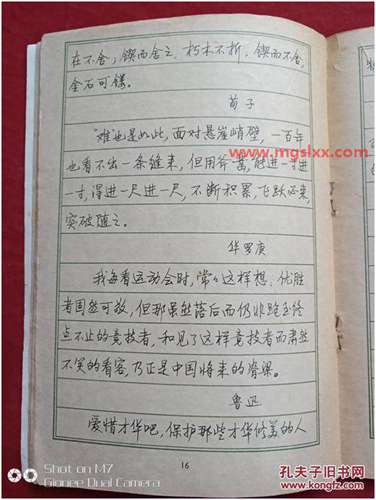 在不舍；锲而舍之，朽木不折，锲而不舍，
金石可镂。
荀子
“难也是如此，面对悬崖峭壁，一百年
www.mgslxx.com
也看不出一条缝来，但用斧凿，能进一寸进
一寸，得进一尺进一尺，不断积累，飞跃必来，
突破随之。
华罗庚
我每看运动会时，常々这样想，优胜
者固然可敬，但那虽然落后而仍非跑至终
点不止的竞技者，和见了这样竞技者而肃然
不笑的看客，乃正是中国将来的脊梁。
鲁迅
爱惜才华吧，保护那些才华修美的人
16
Shot on M7
Gionee Dual Camera
孔夫子旧书网
kongfz.com